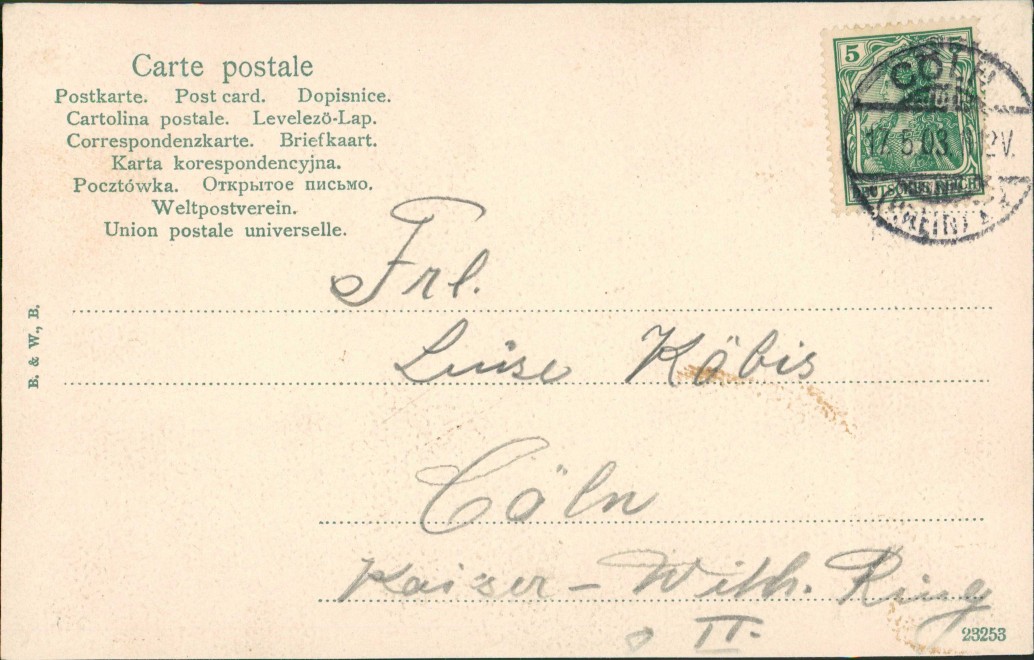 Carte postale
Postkarte. Post card. Dopisnice.
Cartolina postale. Levelezö-Lap.
Correspondenzkarte. Briefkaart.
Karta korespondencyjna.
Pocztówka. Открытое письмо.
Weltpostverein.
Union postale universelle.
5
CÖLN
17.5.03. 12V.
(RHEIN) 1
DEUTSCHES REICH
B. & W., B.
Frl.
Luise Köbis
Cöln
Kaiser - Wilh. Ring
II.
23253